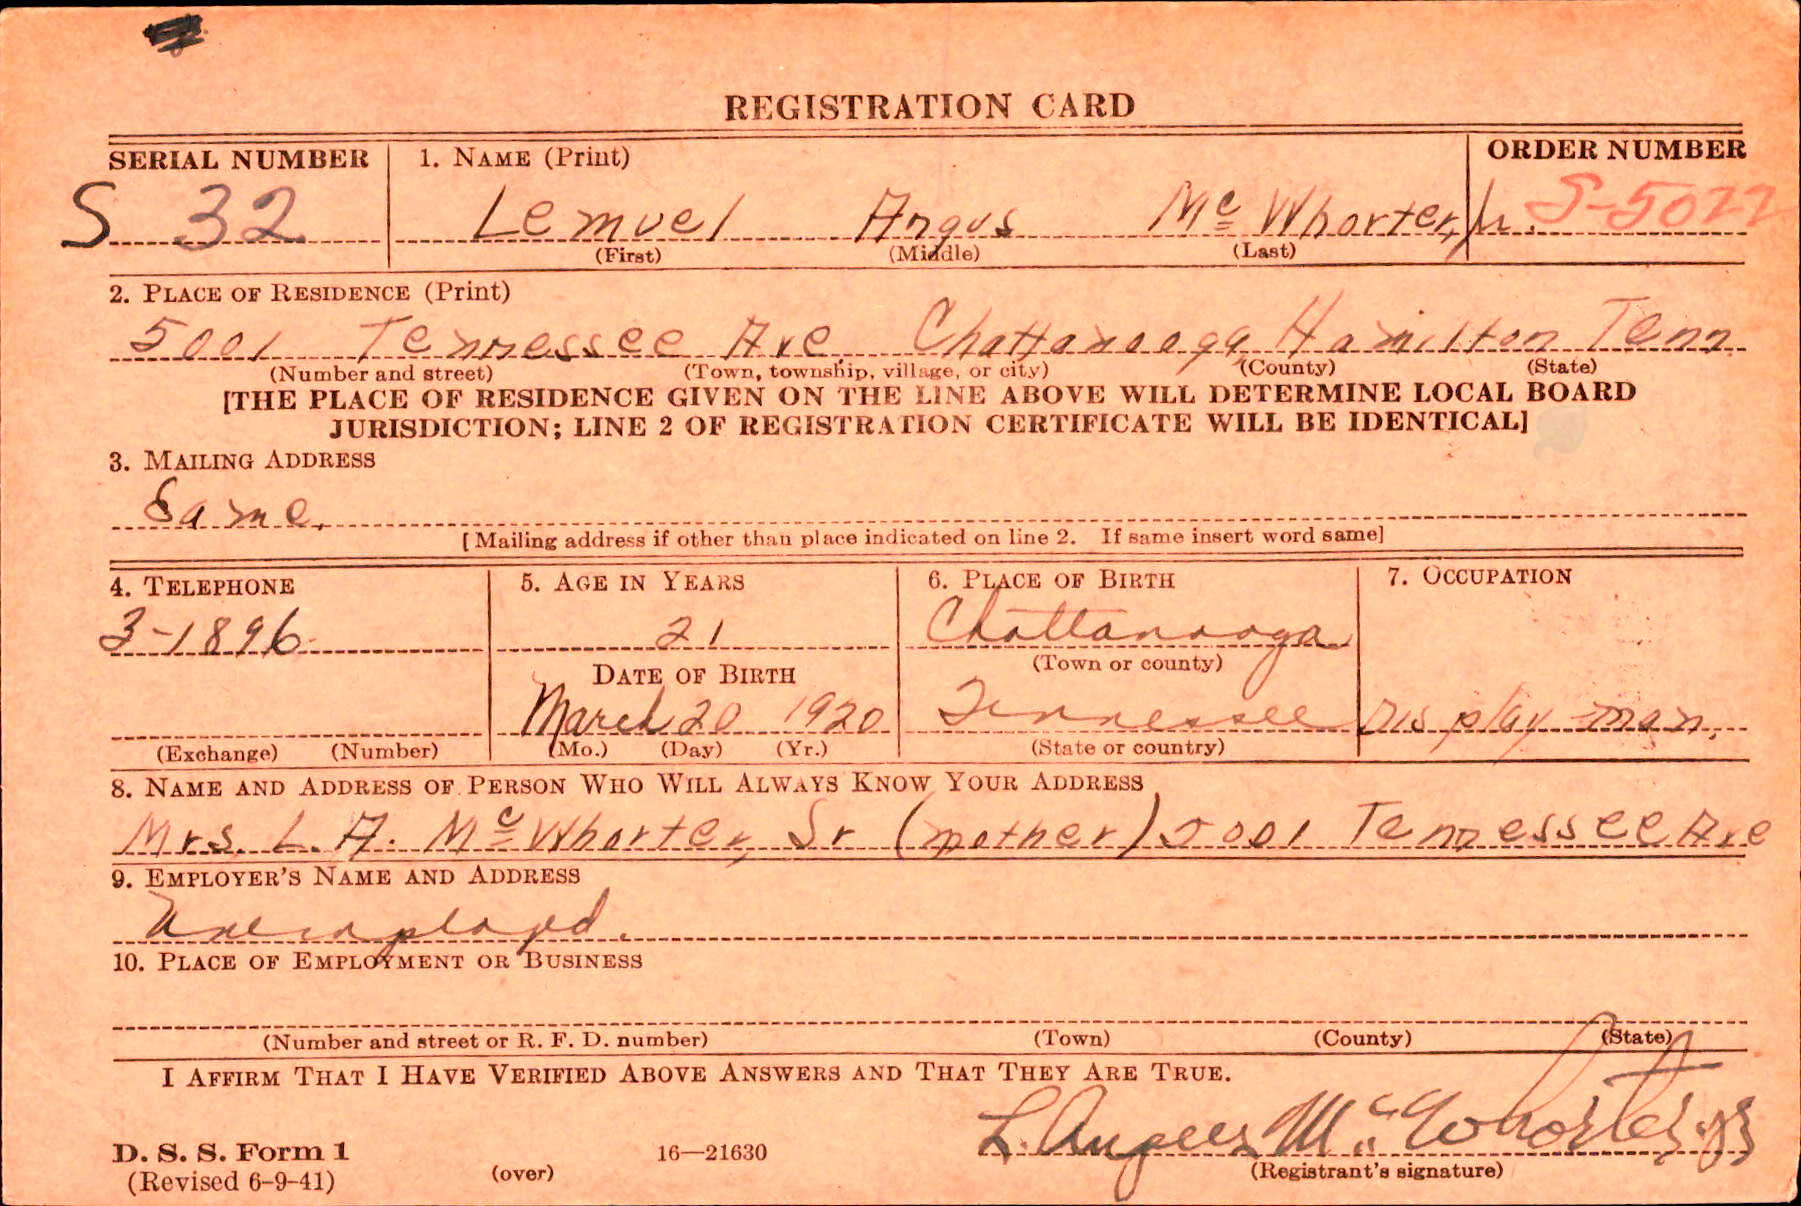 REGISTRATION CARD
SERIAL NUMBER 1. NAME (Print) ORDER NUMBER
S 32 Lemuel Angus McWhorter, Jr. S-5022
(First) (Middle) (Last)
2. PLACE OF RESIDENCE (Print)
5001 Tennessee Ave. Chattanooga Hamilton Tenn
(Number and street) (Town, township, village, or city) (County) (State)
[THE PLACE OF RESIDENCE GIVEN ON THE LINE ABOVE WILL DETERMINE LOCAL BOARD
JURISDICTION; LINE 2 OF REGISTRATION CERTIFICATE WILL BE IDENTICAL]
3. MAILING ADDRESS
Same.
[Mailing address if other than place indicated on line 2. If same insert word same]
4. TELEPHONE 5. AGE IN YEARS 6. PLACE OF BIRTH 7. OCCUPATION
3-1896 21 Chattanooga
DATE OF BIRTH (Town or county)
March 20 1920 Tennessee Display man.
(Exchange) (Number) (Mo.) (Day) (Yr.) (State or country)
8. NAME AND ADDRESS OF PERSON WHO WILL ALWAYS KNOW YOUR ADDRESS
Mrs. L. A. McWhorter, Sr (mother) 5001 Tennessee Ave
9. EMPLOYER'S NAME AND ADDRESS
Unemployed.
10. PLACE OF EMPLOYMENT OR BUSINESS
(Number and street or R. F. D. number) (Town) (County) (State)
I AFFIRM THAT I HAVE VERIFIED ABOVE ANSWERS AND THAT THEY ARE TRUE.
L. Angus McWhorter, Jr
D. S. S. Form 1 16—21630
(Revised 6-9-41) (over) (Registrant's signature)